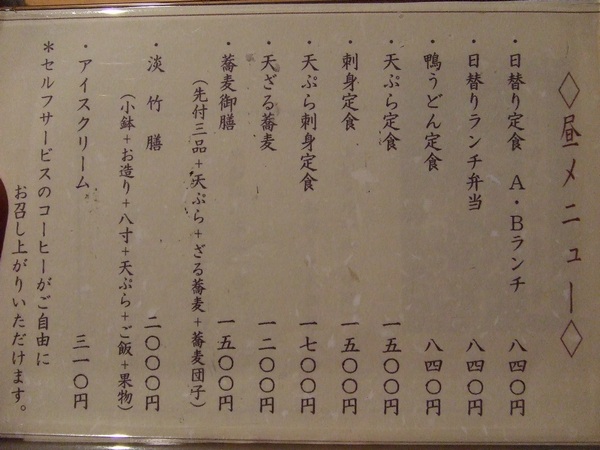 ◇昼メニュー◇
・日替り定食 A・Bランチ 八四〇円
・日替りランチ弁当 八四〇円
・鴨うどん定食 八四〇円
・天ぷら定食 一五〇〇円
・刺身定食 一五〇〇円
・天ぷら刺身定食 一七〇〇円
・天ざる蕎麦 一二〇〇円
・蕎麦御膳 一五〇〇円
(先付三品+天ぷら+ざる蕎麦+蕎麦団子)
・淡竹膳 二〇〇〇円
(小鉢+お造り+八寸+天ぷら+ご飯+果物)
・アイスクリーム 三一〇円
*セルフサービスのコーヒーがご自由に
お召し上がりいただけます。